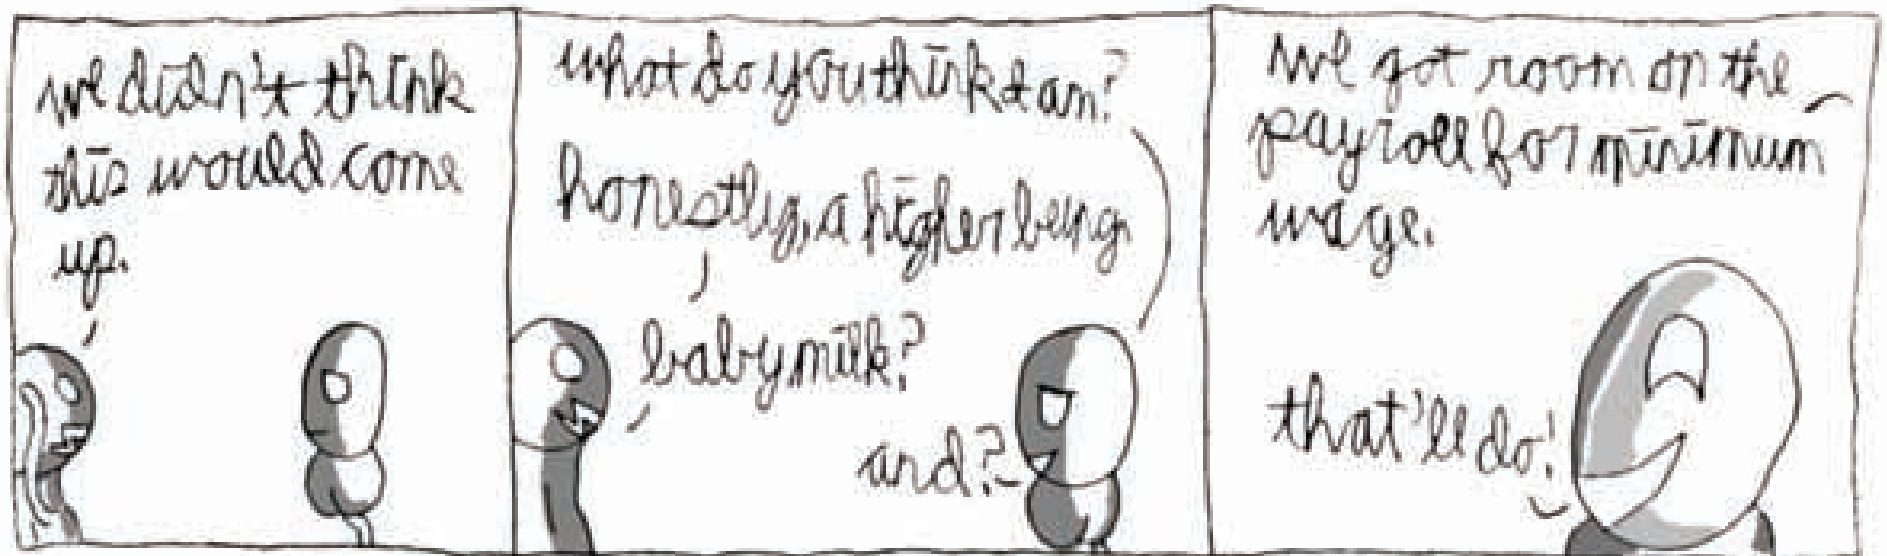 we didn't think
this would come
up.
what do you think I am?
honestly, a higher being.
baby milk?
and?
we got room on the
payroll for minimum
wage.
that'll do!